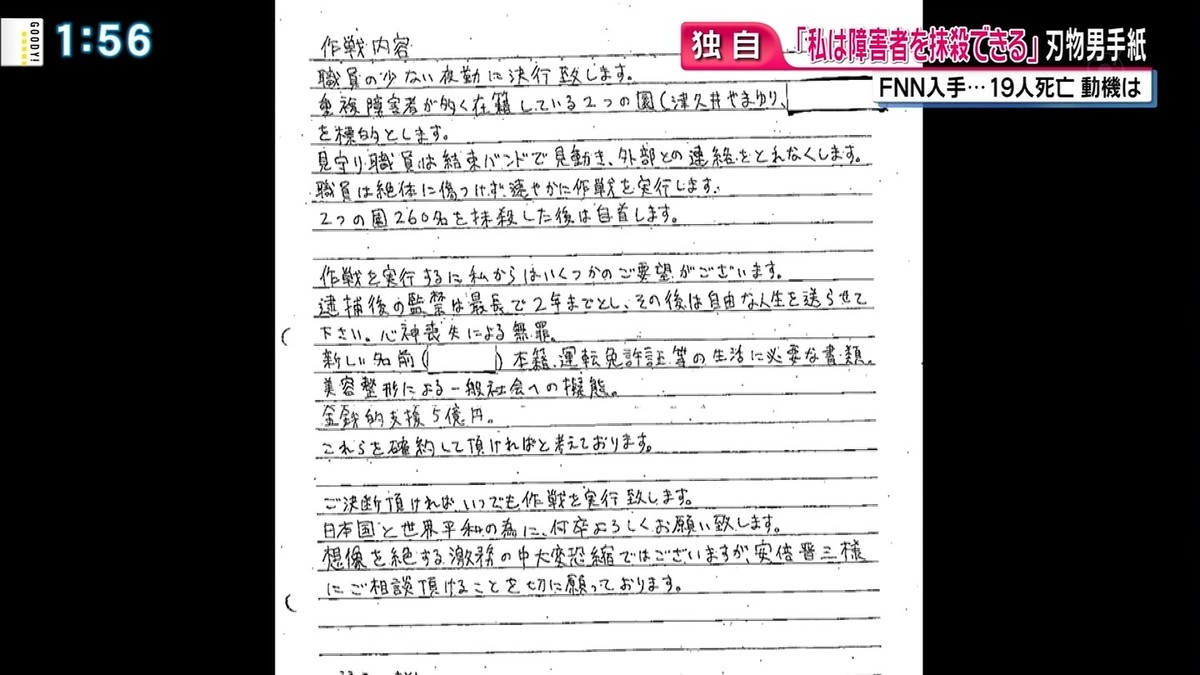 GOODY!
1:56
独自
「私は障害者を抹殺できる」刃物男手紙
FNN入手… 19人死亡 動機は
作戦内容
職員の少ない夜勤に決行致します。
重複障害者が多く在籍している2つの園(津久井やまゆり、
を標的とします。
見守り職員は結束バンドで見動き、外部との連絡をとれなくします。
職員は絶体に傷つけず、速やかに作戦を実行します。
2つの園260名を抹殺した後は自首します。
作戦を実行するに私からはいくつかのご要望がございます。
逮捕後の監禁は最長で2年までとし、その後は自由な人生を送らせて
下さい。心神喪失による無罪。
新しい名前( )本籍、運転免許証等の生活に必要な書類。
美容整形による一般社会への擬態。
金銭的支援5億円。
これらを確約して頂ければと考えております。
ご決断頂ければいつでも作戦を実行致します。
日本国と世界平和の為に、何卒よろしくお願い致します。
想像を絶する激務の中大変恐縮ではございますが、安倍晋三様
にご相談頂けることを切に願っております。